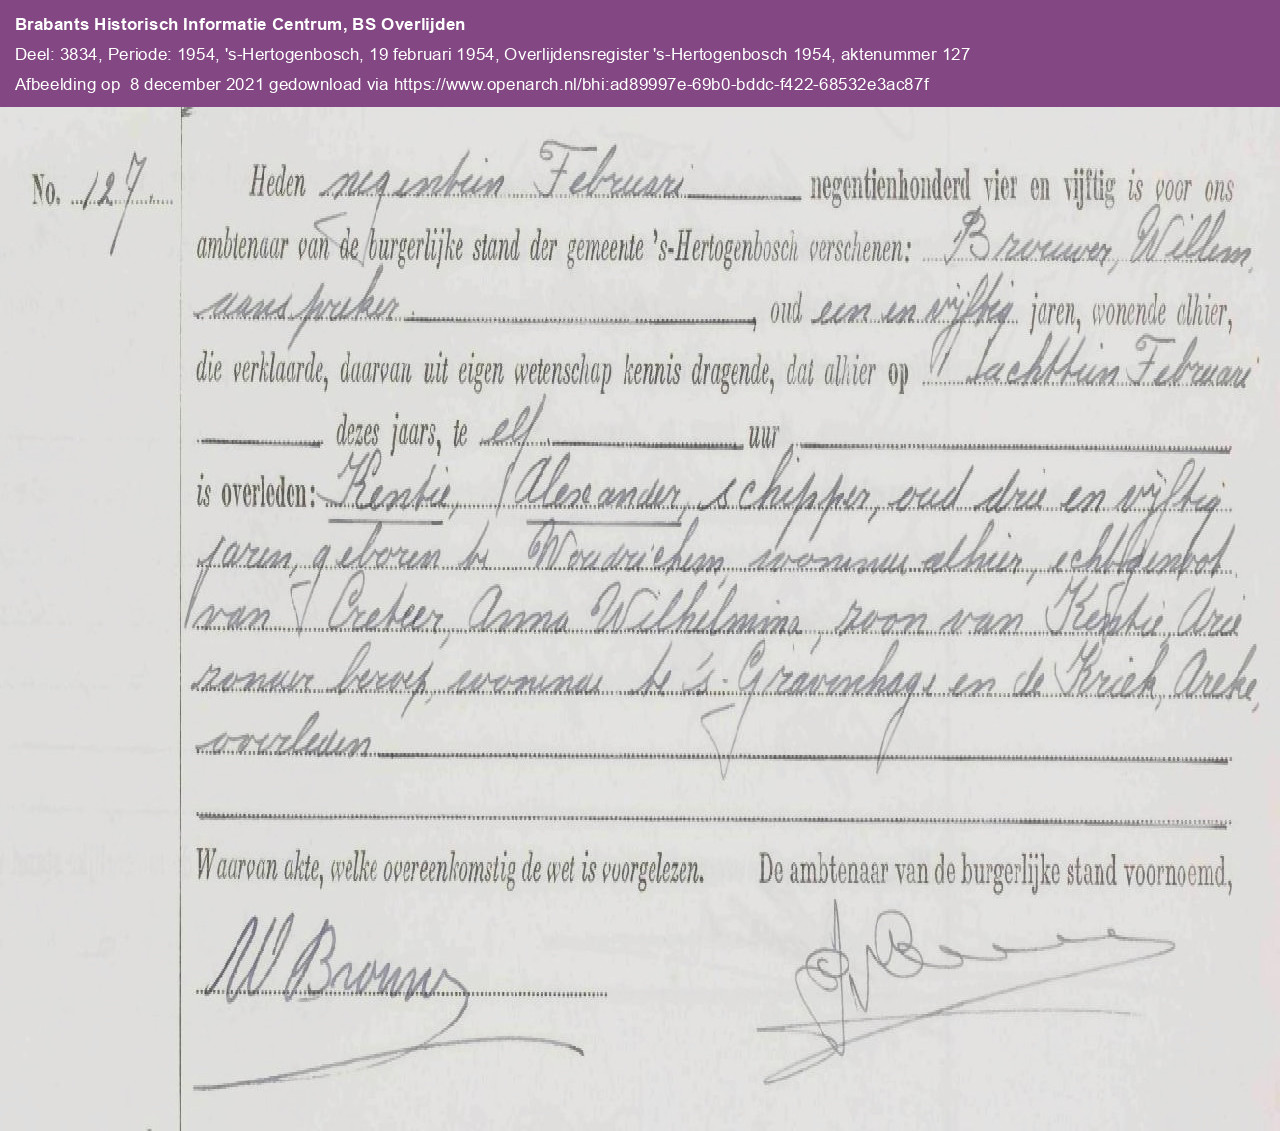 Brabants Historisch Informatie Centrum, BS Overlijden
Deel: 3834, Periode: 1954, 's-Hertogenbosch, 19 februari 1954, Overlijdensregister 's-Hertogenbosch 1954, aktenummer 127
Afbeelding op 8 december 2021 gedownload via https://www.openarch.nl/bhi:ad89997e-69b0-bddc-f422-68532e3ac87f
No. 127.
Heden negentien Februari negentienhonderd vier en vijftig is voor ons
ambtenaar van de burgerlijke stand der gemeente 's-Hertogenbosch verschenen: Brouwer, Willem,
aanspreker, oud een en vijftig jaren, wonende alhier,
die verklaarde, daarvan uit eigen wetenschap kennis dragende, dat alhier op achttien Februari
dezes jaars, te elf uur
is overleden: Kentie, Alexander, schipper, oud drie en vijftig
jaren, geboren te Woudrichem, wonende alhier, echtgenoot
van Creteer, Anna Wilhelmina, zoon van Kentie, Arie
zonder beroep, wonende te 's-Gravenhage en de Kriek,
overleden
Waarvan akte, welke overeenkomstig de wet is voorgelezen. De ambtenaar van de burgerlijke stand voornoemd,
W Brouwer